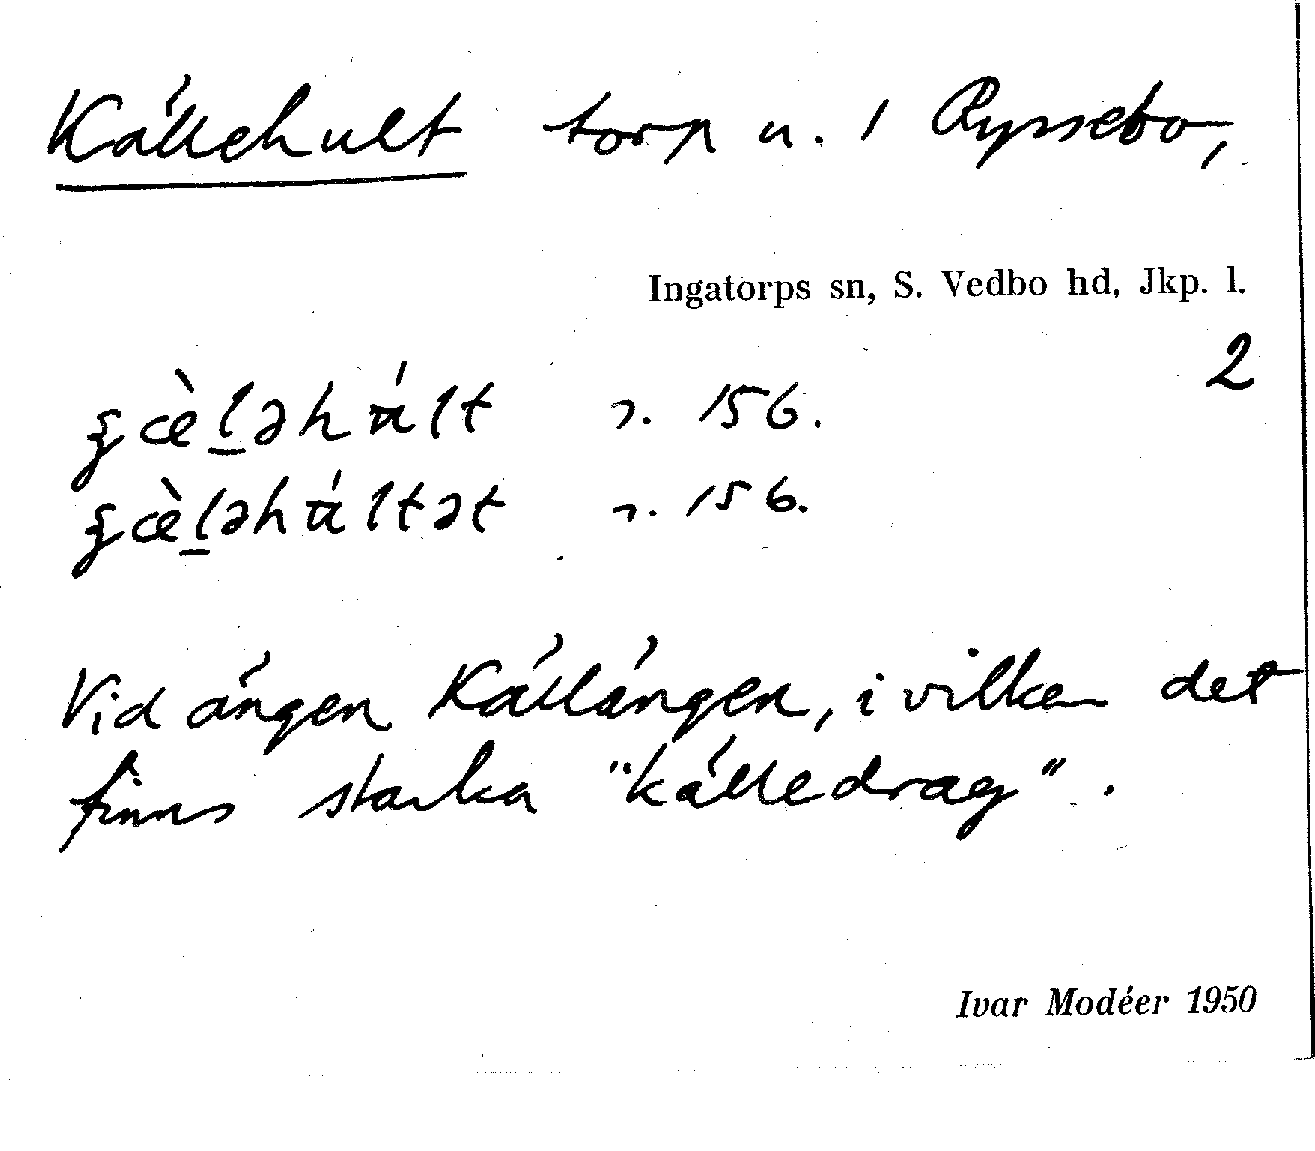 Källehult torp u. 1 Ryssebo,
Ingatorps sn, S. Vedbo hd, Jkp. l.
2
156.
156.
Vid ängen Källängen, i vilken det
finns starka "källedrag".
Ivar Modéer 1950